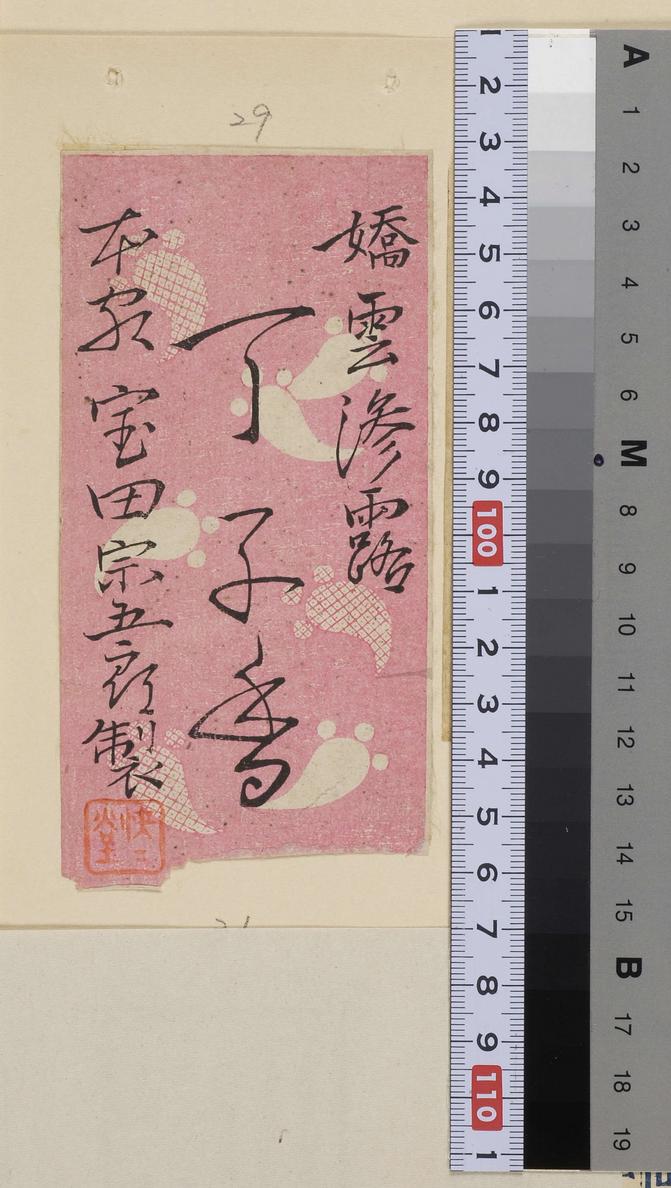 29
嬌雲滲露
丁子香
本家 宝田宗五郎製
21
1
2
3
4
5
6
7
8
9
100
1
2
3
4
5
6
7
8
9
110
1
A
1
2
3
4
5
6
M
8
9
10
11
12
13
14
15
B
17
18
19